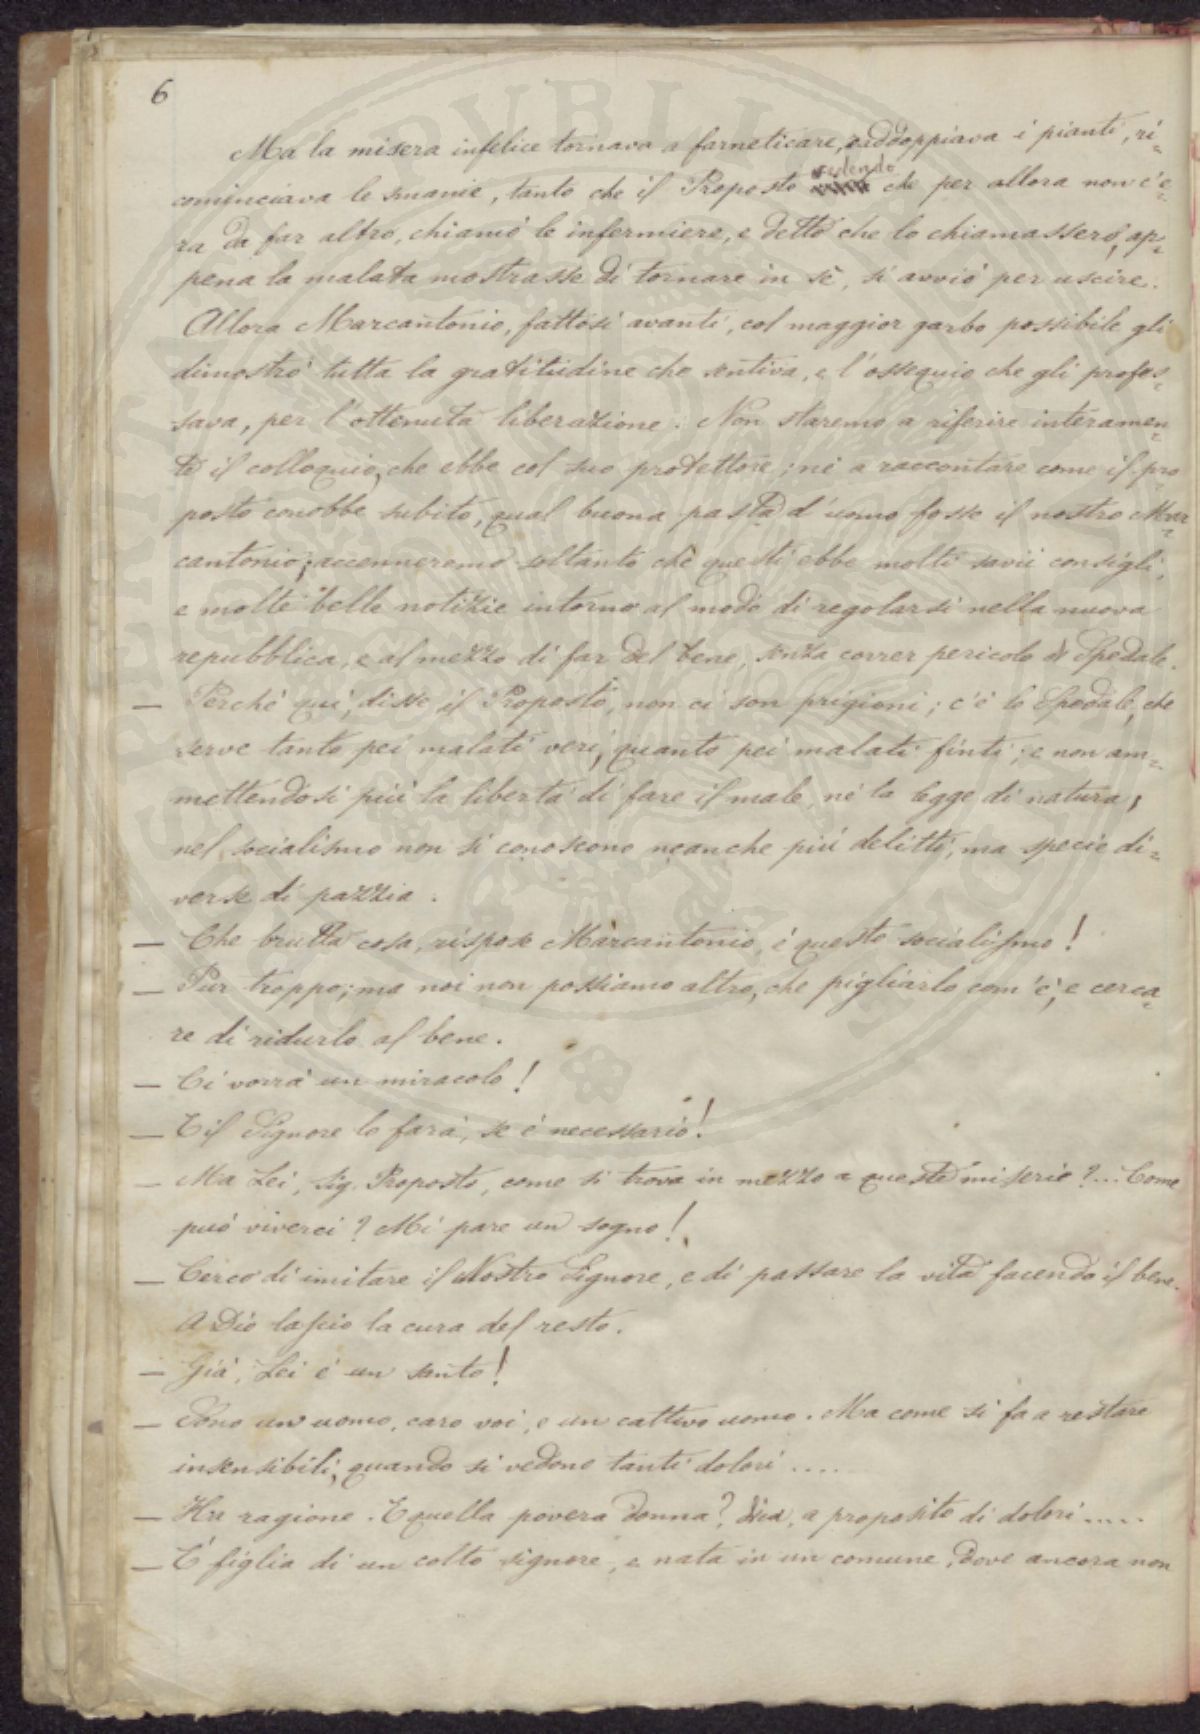 6
Ma la misera infelice tornava a farneticare, raddoppiava i pianti, ri-
cominciava le smanie, tanto che il Proposto vedendo che per allora non c'e-
ra da far altro, chiamò le infermiere, e detto che lo chiamassero, ap-
pena la malata mostrasse di tornare in sè, si avviò per uscire.
Allora Marcantonio, fattosi avanti, col maggior garbo possibile gli
dimostrò tutta la gratitudine che sentiva, e l'ossequio che gli profes-
sava, per l'ottenuta liberazione. Non staremo a riferire interamen-
te il colloquio, che ebbe col suo protettore; nè a raccontare come il pro-
posto conobbe subito, qual buona pasta d'uomo fosse il nostro Mar-
cantonio; accenneremo soltanto che questi ebbe molti savii consigli,
e molte belle notizie intorno al modo di regolarsi nella nuova
repubblica, e al mezzo di far del bene, senza correr pericolo di Spedale.
— Perchè qui, disse il Proposto, non ci son prigioni; c'è lo Spedale, che
serve tanto pei malati veri, quanto pei malati finti; e non am-
mettendosi più la libertà di fare il male, nè la legge di natura,
nel socialismo non si conoscono neanche più delitti, ma specie di-
verse di pazzia.
— Che brutta cosa, rispose Marcantonio, è questo socialismo!
— Pur troppo; ma noi non possiamo altro, che pigliarlo com'è, e cerca-
re di ridurlo al bene.
— Ci vorrà un miracolo!
— E il Signore lo farà, se è necessario!
— Ma Lei, Sig. Proposto, come si trova in mezzo a queste miserie?... Come
può viverci? Mi pare un sogno!
— Cerco di imitare il Nostro Signore, e di passare la vita facendo il bene.
A Dio lascio la cura del resto.
— Già, Lei è un santo!
— Sono un uomo, caro voi, e un cattivo uomo. Ma come si fa a restare
insensibili, quando si vedono tanti dolori ....
— Ha ragione. E quella povera donna?, dica, a proposito di dolori.....
— È figlia di un colto signore, e nata in un comune, dove ancora non